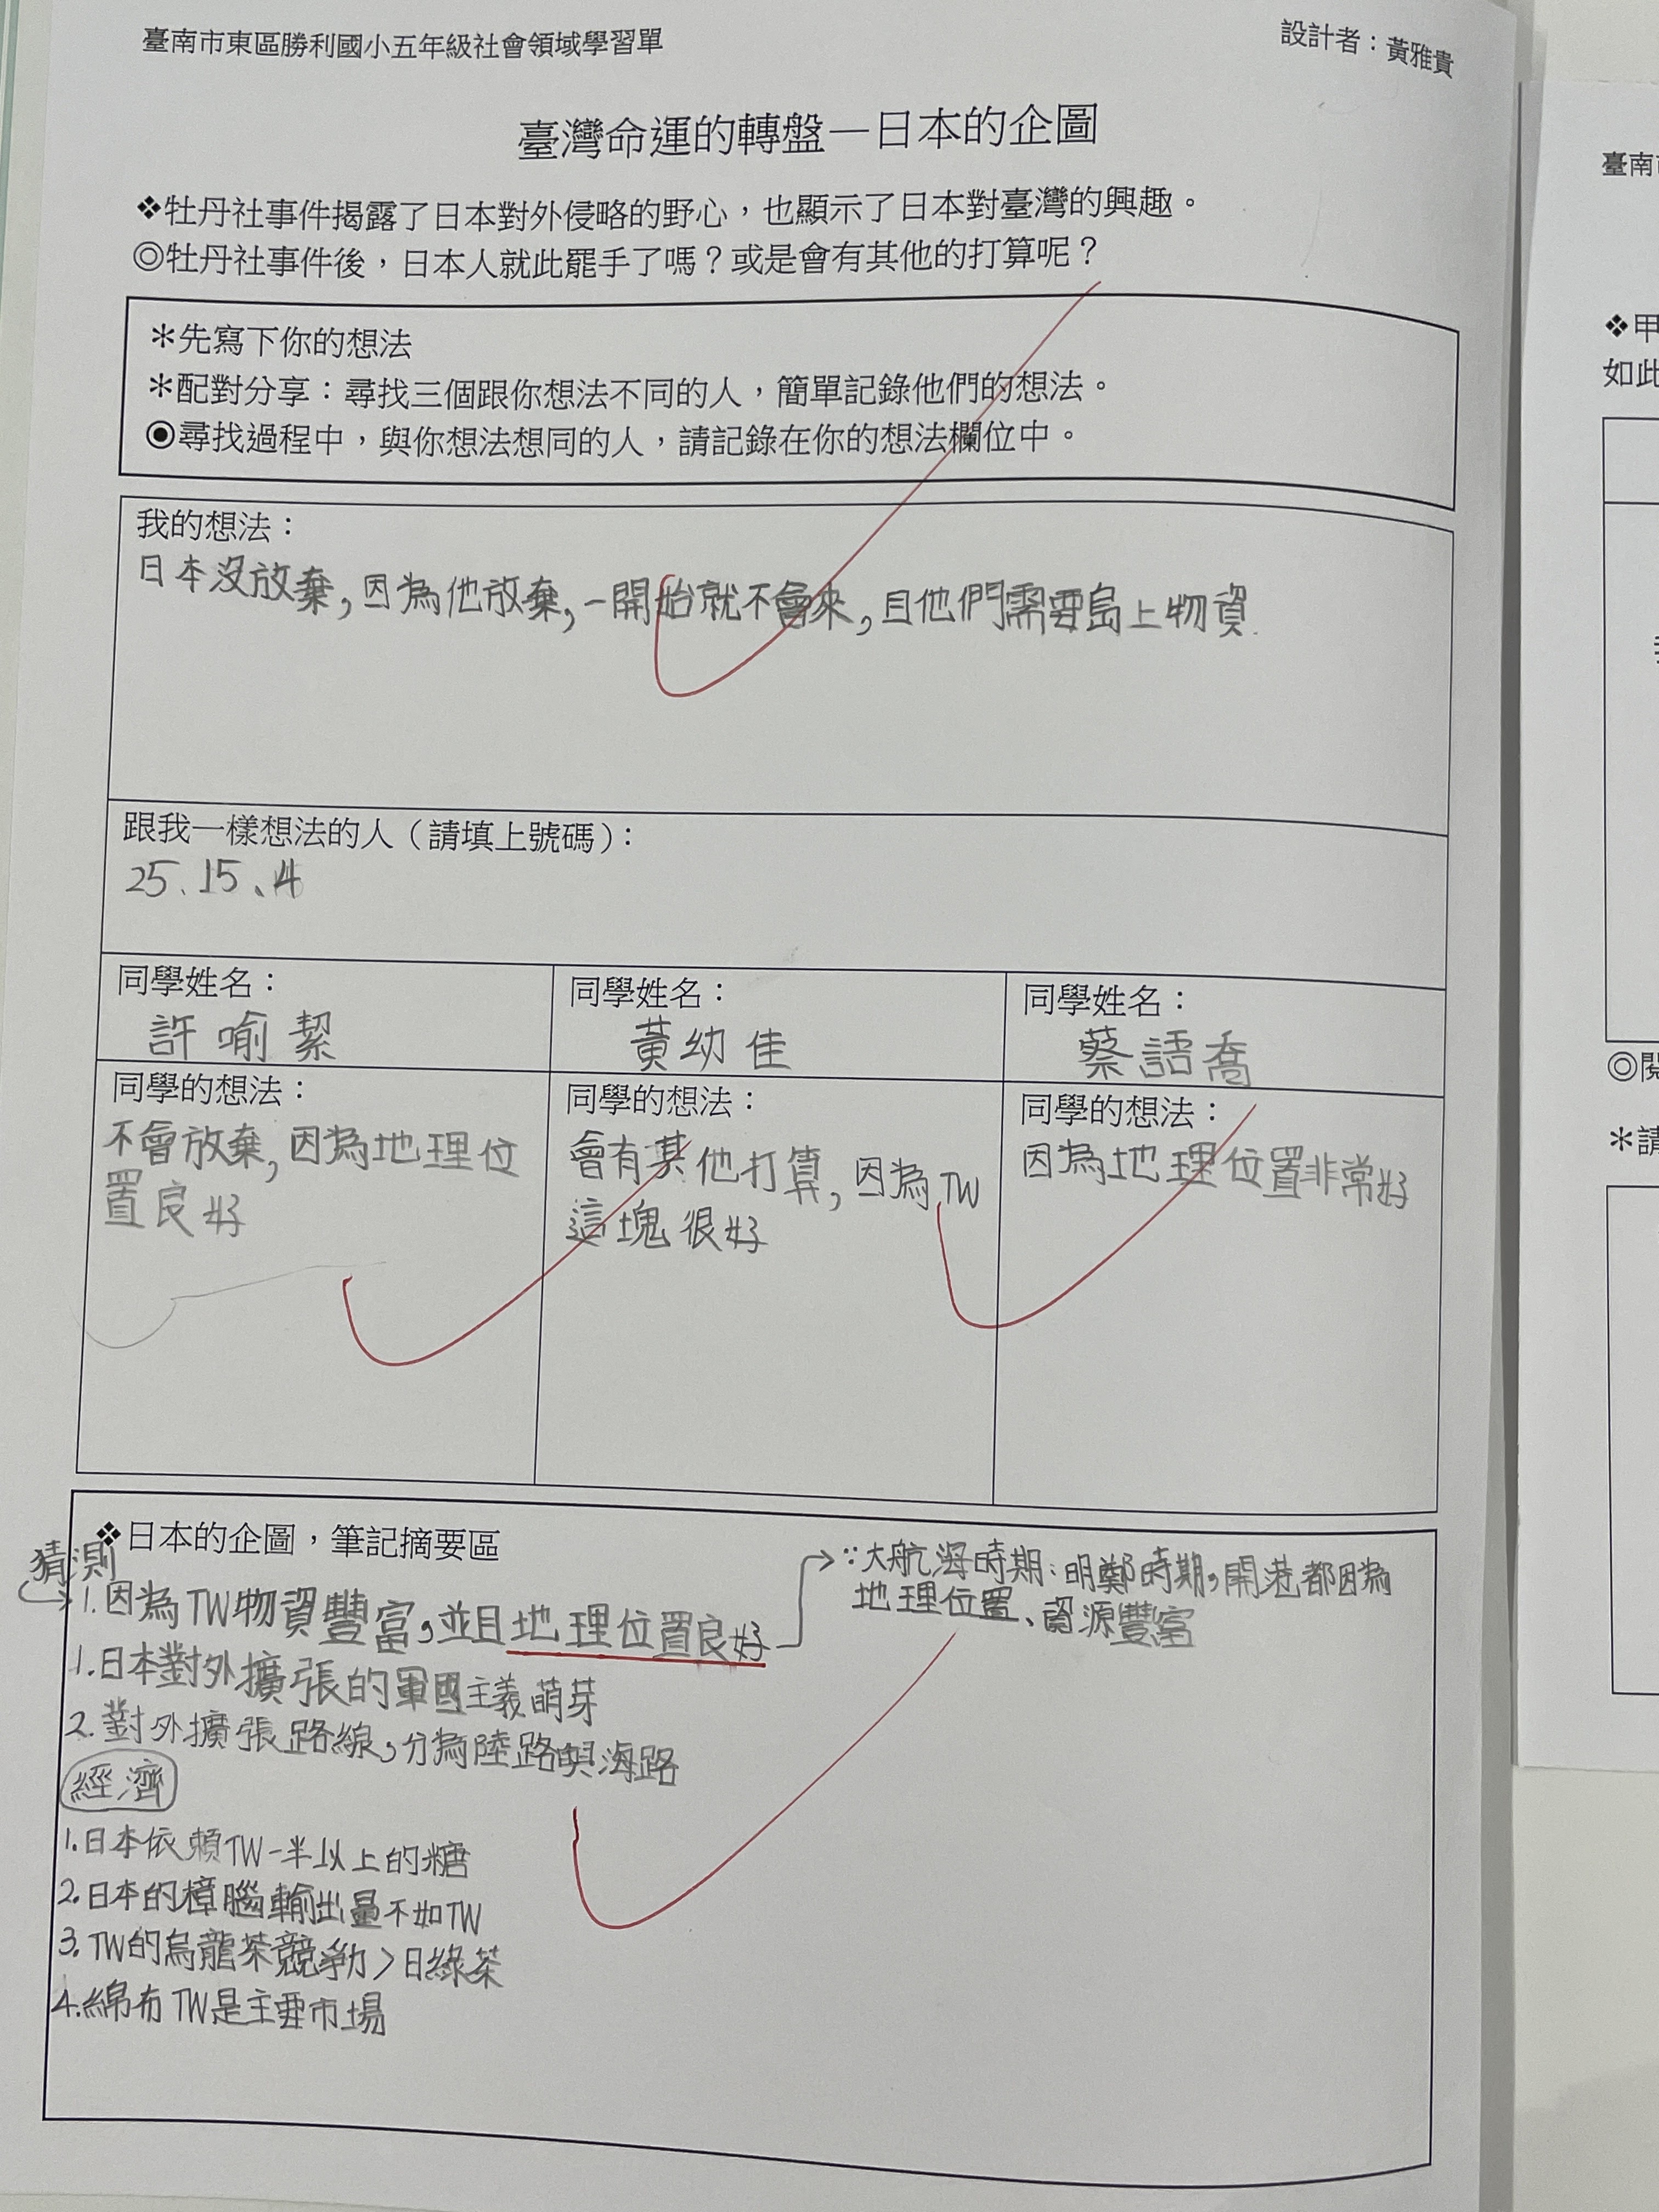 臺南市東區勝利國小五年級社會領域學習單
設計者：黃雅貴
臺灣命運的轉盤—日本的企圖
❖牡丹社事件揭露了日本對外侵略的野心，也顯示了日本對臺灣的興趣。
◎牡丹社事件後，日本人就此罷手了嗎？或是會有其他的打算呢？
＊先寫下你的想法
＊配對分享：尋找三個跟你想法不同的人，簡單記錄他們的想法。
◉尋找過程中，與你想法想同的人，請記錄在你的想法欄位中。
我的想法：
日本沒放棄，因為他放棄，一開始就不會來，且他們需要島上物資.
跟我一樣想法的人（請填上號碼）：
25、15、4
同學姓名：
許喻絜
同學姓名：
黃幼佳
同學姓名：
蔡語喬
同學的想法：
不會放棄，因為地理位
置良好
同學的想法：
會有其他打算，因為TW
這塊很好
同學的想法：
因為地理位置非常好
❖日本的企圖，筆記摘要區
猜測
1.因為TW物資豐富，並且地理位置良好
∵大航海時期：明鄭時期，開港都因為
地理位置、資源豐富
1.日本對外擴張的軍國主義萌芽
2.對外擴張路線，分為陸路與海路
經濟
1.日本依賴TW一半以上的糖
2.日本的樟腦輸出量不如TW
3.TW的烏龍茶競爭力>日綠茶
4.綿布TW是主要市場
臺南
❖甲
如此
◎閱
＊請